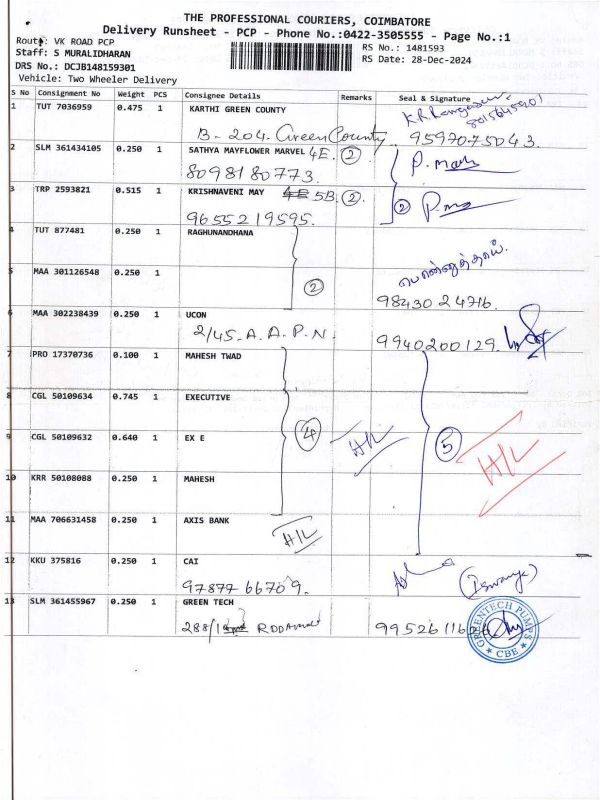 THE PROFESSIONAL COURIERS, COIMBATORE
Delivery Runsheet - PCP - Phone No.:0422-3505555 - Page No.:1
Route: VK ROAD PCP
RS No.: 1481593
Staff: S MURALIDHARAN
RS Date: 28-Dec-2024
DRS No.: DCJB148159301
Vehicle: Two Wheeler Delivery
S No Consignment No Weight PCS Consignee Details Remarks Seal & Signature
1 TUT 7036959 0.475 1 KARTHI GREEN COUNTY
B-204. Green County 9597075043
2 SLM 361434105 0.250 1 SATHYA MAYFLOWER MARVEL 4E 2
8098180773.
3 TRP 2593821 0.515 1 KRISHNAVENI MAY 5B 2 2
9655219595.
4 TUT 877481 0.250 1 RAGHUNANDHANA
5 MAA 301126548 0.250 1 2 பொன்னுத்தாய்.
98430 24716.
6 MAA 302238439 0.250 1 UCON
2/45. A. A. P. N. 9940200129.
7 PRO 17370736 0.100 1 MAHESH TWAD
8 CGL 50109634 0.745 1 EXECUTIVE
9 CGL 50109632 0.640 1 EX E 4 H/L 5 H/L
10 KRR 50108088 0.250 1 MAHESH
11 MAA 706631458 0.250 1 AXIS BANK H/L
12 KKU 375816 0.250 1 CAI
97877 66709.
13 SLM 361455967 0.250 1 GREEN TECH
288/1
GREENTECH PUMPS
CBE